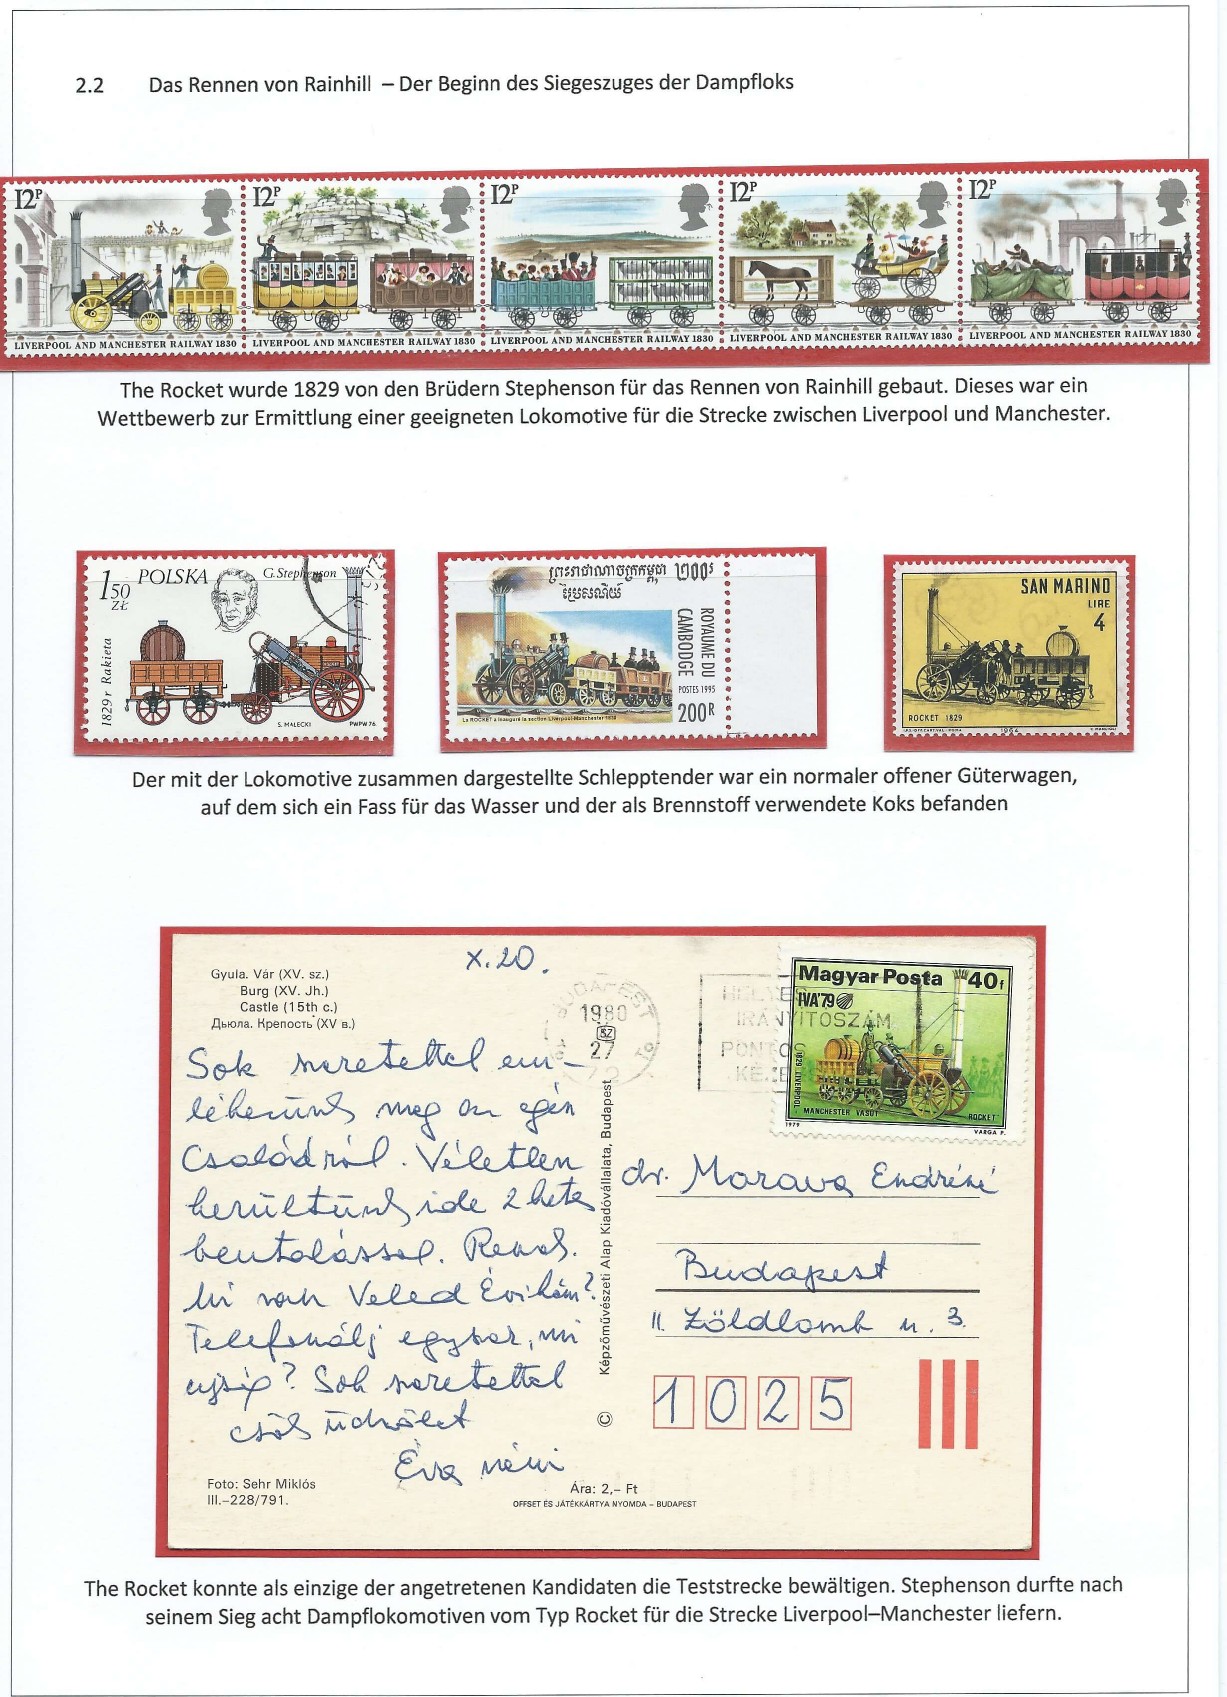 2.2 Das Rennen von Rainhill – Der Beginn des Siegeszuges der Dampfloks
12P 12P 12P 12P 12P
LIVERPOOL AND MANCHESTER RAILWAY 1830 LIVERPOOL AND MANCHESTER RAILWAY 1830 LIVERPOOL AND MANCHESTER RAILWAY 1830 LIVERPOOL AND MANCHESTER RAILWAY 1830 LIVERPOOL AND MANCHESTER RAILWAY 1830
The Rocket wurde 1829 von den Brüdern Stephenson für das Rennen von Rainhill gebaut. Dieses war ein
Wettbewerb zur Ermittlung einer geeigneten Lokomotive für die Strecke zwischen Liverpool und Manchester.
150 ZŁ
POLSKA
G.Stephenson
1829 r Rakieta
S. MAŁECKI
PWPW 76
ព្រះរាជាណាចក្រកម្ពុជា
ប្រៃសណីយ៍
២០០៛
ROYAUME DU
CAMBODGE
POSTES 1995
200R
La ROCKET a inauguré la section Liverpool-Manchester 1829
SAN MARINO
LIRE
4
ROCKET 1829
1964
Der mit der Lokomotive zusammen dargestellte Schlepptender war ein normaler offener Güterwagen,
auf dem sich ein Fass für das Wasser und der als Brennstoff verwendete Koks befanden
X.20.
Gyula. Vár (XV. sz.)
Burg (XV. Jh.)
Castle (15th c.)
Дьюла. Крепость (XV в.)
BUDAPEST
1980
27
72
HELYES
IRÁNYÍTÓSZÁM
PONTOS
KÉZB
Magyar Posta 40f
IVA'79
1829 LIVERPOOL
MANCHESTER VASÚT
"ROCKET"
1979
VARGA P.
Sok szeretettel em-
lékezünk meg az egész
Családról. Véletlen
kerültünk ide 2 hetes
beutalással.
Mi van Veled Évikém?
Telefonálj egyszer, mi
ujság? Sok szeretettel
csók üdvözlet
Éva néni
dr. Morava Endréné
Budapest
II. Zöldlomb u. 3.
1025
Képzőművészeti Alap Kiadóvállalata, Budapest
©
Foto: Sehr Miklós
III.–228/791.
Ára: 2,– Ft
OFFSET ÉS JÁTÉKKÁRTYA NYOMDA – BUDAPEST
The Rocket konnte als einzige der angetretenen Kandidaten die Teststrecke bewältigen. Stephenson durfte nach
seinem Sieg acht Dampflokomotiven vom Typ Rocket für die Strecke Liverpool–Manchester liefern.